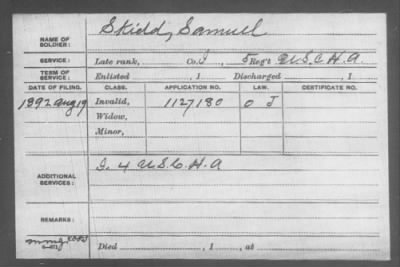 NAME OF SOLDIER: Skidd, Samuel
SERVICE: Late rank, Co. I, 5 Reg't U.S.C.H.A.
TERM OF SERVICE: Enlisted , 1 Discharged , 1
DATE OF FILING. CLASS. APPLICATION NO. LAW. CERTIFICATE NO.
1892 Aug 19 Invalid, 1127180 O J
Widow,
Minor,
ADDITIONAL SERVICES: I. 4 U.S.C.H.A
REMARKS:
Died , 1 , at